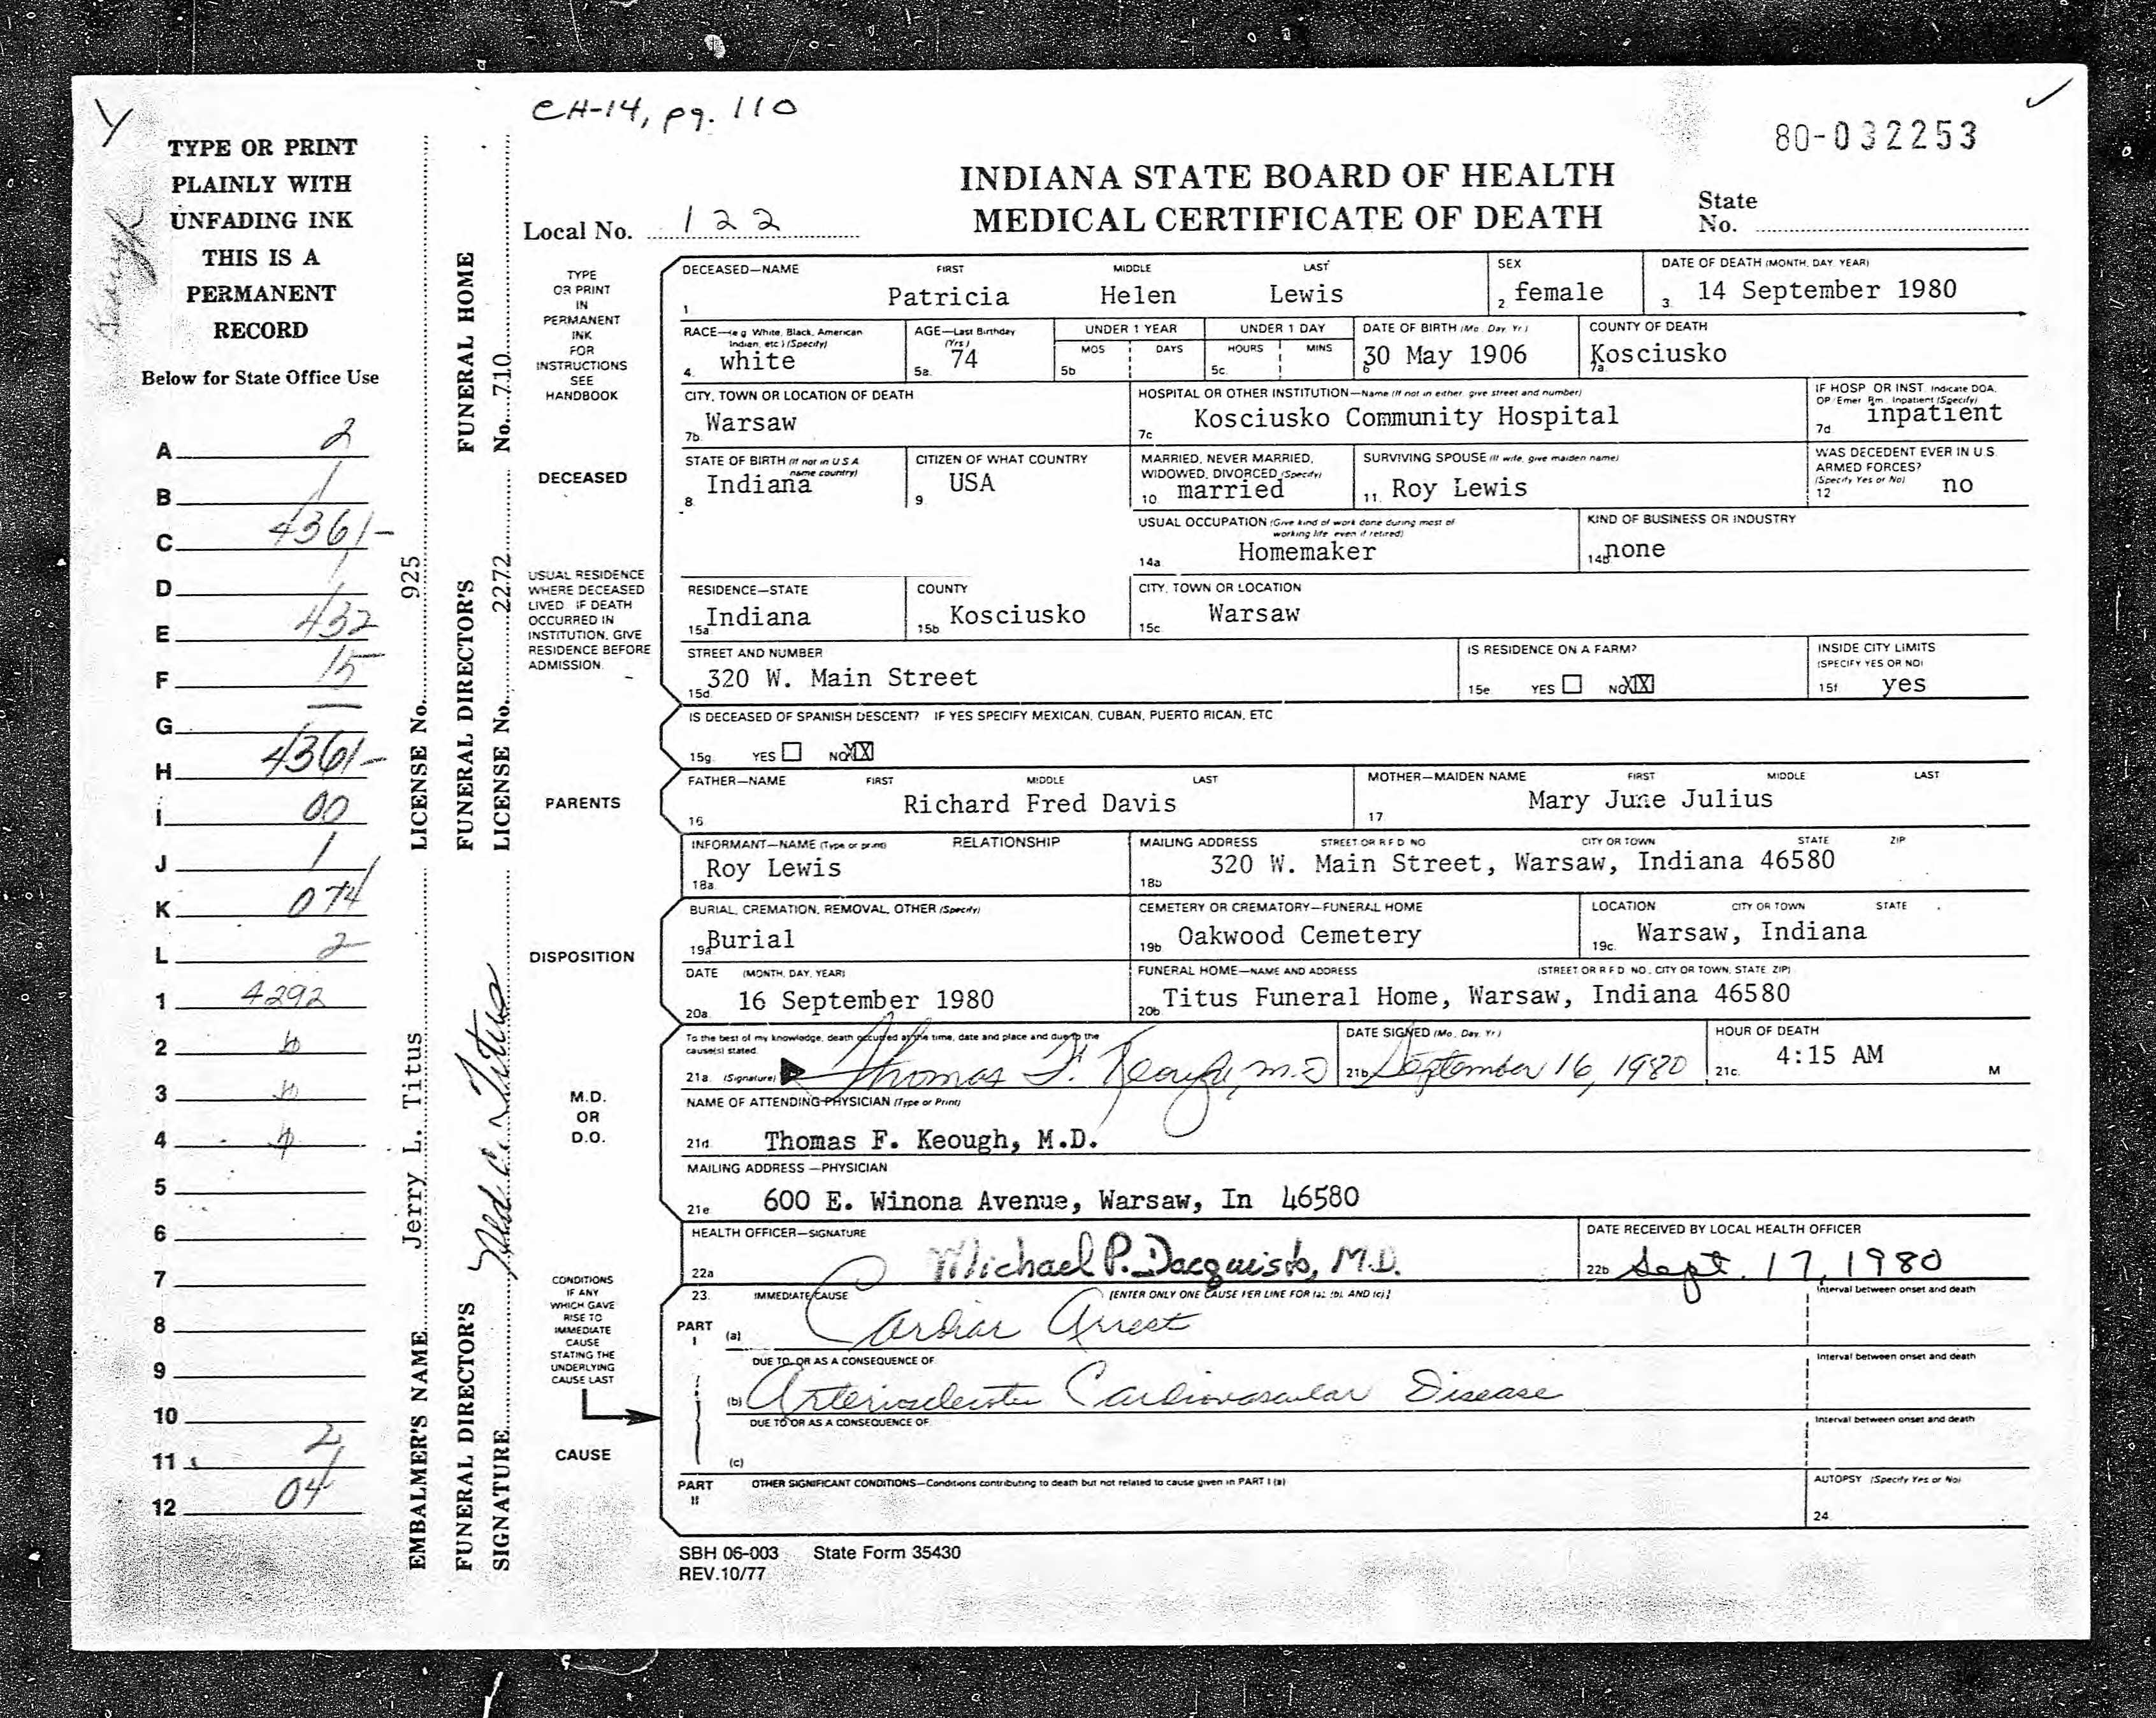 CH-14, pg. 110
80-032253
TYPE OR PRINT
PLAINLY WITH
UNFADING INK
THIS IS A
PERMANENT
RECORD
Below for State Office Use
A 2
B 1
C 4361-
D 1
E 432
F 15
G —
H 4361-
I 00
J 1
K 074
L 2
1 4292
2
3
4
5
6
7
8
9
10
11 2
12 04
EMBALMER'S NAME Jerry L. Titus LICENSE No. 925
FUNERAL DIRECTOR'S FUNERAL DIRECTOR'S FUNERAL HOME
SIGNATURE LICENSE No. 2272 No. 710
INDIANA STATE BOARD OF HEALTH
MEDICAL CERTIFICATE OF DEATH
Local No. 122
State
No.
TYPE
OR PRINT
IN
PERMANENT
INK
FOR
INSTRUCTIONS
SEE
HANDBOOK
DECEASED—NAME FIRST MIDDLE LAST SEX DATE OF DEATH (MONTH, DAY, YEAR)
1 Patricia Helen Lewis 2. female 3. 14 September 1980
RACE—(e.g. White, Black, American Indian, etc.) (Specify) AGE—Last Birthday (Yrs.) UNDER 1 YEAR UNDER 1 DAY DATE OF BIRTH (Mo., Day, Yr.) COUNTY OF DEATH
MOS DAYS HOURS MINS
4. white 5a. 74 5b 5c. 6 30 May 1906 7a. Kosciusko
CITY, TOWN OR LOCATION OF DEATH HOSPITAL OR OTHER INSTITUTION—Name (If not in either, give street and number) IF HOSP. OR INST. Indicate DOA, OP/Emer. Rm., Inpatient (Specify)
7b. Warsaw 7c Kosciusko Community Hospital 7d inpatient
DECEASED
STATE OF BIRTH (If not in U.S.A. name country) CITIZEN OF WHAT COUNTRY MARRIED, NEVER MARRIED, WIDOWED, DIVORCED (Specify) SURVIVING SPOUSE (If wife, give maiden name) WAS DECEDENT EVER IN U.S. ARMED FORCES? (Specify Yes or No)
8 Indiana 9 USA 10 married 11. Roy Lewis 12 no
USUAL OCCUPATION (Give kind of work done during most of working life, even if retired) KIND OF BUSINESS OR INDUSTRY
14a Homemaker 14b. none
USUAL RESIDENCE
WHERE DECEASED
LIVED. IF DEATH
OCCURRED IN
INSTITUTION, GIVE
RESIDENCE BEFORE
ADMISSION.
RESIDENCE—STATE COUNTY CITY, TOWN OR LOCATION
15a Indiana 15b Kosciusko 15c. Warsaw
STREET AND NUMBER IS RESIDENCE ON A FARM? INSIDE CITY LIMITS (SPECIFY YES OR NO)
15d. 320 W. Main Street 15e YES NO XX 15f yes
IS DECEASED OF SPANISH DESCENT? IF YES SPECIFY MEXICAN, CUBAN, PUERTO RICAN, ETC.
15g. YES NO XX
PARENTS
FATHER—NAME FIRST MIDDLE LAST MOTHER—MAIDEN NAME FIRST MIDDLE LAST
16 Richard Fred Davis 17 Mary June Julius
INFORMANT—NAME (Type or print) RELATIONSHIP MAILING ADDRESS STREET OR R F D NO CITY OR TOWN STATE ZIP
18a. Roy Lewis 18b 320 W. Main Street, Warsaw, Indiana 46580
DISPOSITION
BURIAL, CREMATION, REMOVAL, OTHER (Specify) CEMETERY OR CREMATORY—FUNERAL HOME LOCATION CITY OR TOWN STATE
19a Burial 19b Oakwood Cemetery 19c. Warsaw, Indiana
DATE (MONTH, DAY, YEAR) FUNERAL HOME—NAME AND ADDRESS (STREET OR R F D NO., CITY OR TOWN, STATE, ZIP)
20a. 16 September 1980 20b. Titus Funeral Home, Warsaw, Indiana 46580
M.D.
OR
D.O.
To the best of my knowledge, death occurred at the time, date and place and due to the cause(s) stated. DATE SIGNED (Mo., Day, Yr.) HOUR OF DEATH
21a. (Signature) Thomas F. Keough, M.D 21b. September 16, 1980 21c. 4:15 AM M
NAME OF ATTENDING PHYSICIAN (Type or Print)
21d. Thomas F. Keough, M.D.
MAILING ADDRESS —PHYSICIAN
21e 600 E. Winona Avenue, Warsaw, In 46580
HEALTH OFFICER—SIGNATURE DATE RECEIVED BY LOCAL HEALTH OFFICER
22a Michael P. Dacquisto, M.D. 22b Sept. 17, 1980
CONDITIONS
IF ANY
WHICH GAVE
RISE TO
IMMEDIATE
CAUSE
STATING THE
UNDERLYING
CAUSE LAST
CAUSE
23. IMMEDIATE CAUSE [ENTER ONLY ONE CAUSE PER LINE FOR (a), (b), AND (c)] Interval between onset and death
PART I (a) Cardiac Arrest
DUE TO, OR AS A CONSEQUENCE OF Interval between onset and death
(b) Arteriosclerotic Cardiovascular Disease
DUE TO OR AS A CONSEQUENCE OF Interval between onset and death
(c)
PART II OTHER SIGNIFICANT CONDITIONS—Conditions contributing to death but not related to cause given in PART I (a) AUTOPSY (Specify Yes or No)
24.
SBH 06-003 State Form 35430
REV.10/77